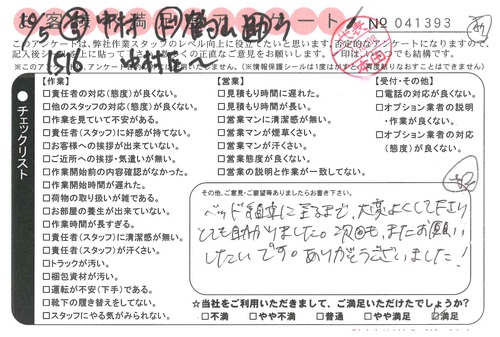 お客様満足度アンケート No 041393
このアンケートは、弊社作業スタッフのレベル向上に役立てたいと思います。否定的なアンケートになりますので、
※このアンケートは、
(※情報保護シールは1度はがすと再度貼りなおすことはできません)
チェックリスト
【作業】
□責任者の対応(態度)が良くない。
□他のスタッフの対応(態度)が良くない。
□作業を見ていて不安がある。
□責任者(スタッフ)に好感が持てない。
□お客様への挨拶が出来ていない。
□ご近所への挨拶・気遣いが無い。
□作業開始前の内容確認がなかった。
□作業開始時間が遅れた。
□荷物の取り扱いが雑である。
□お部屋の養生が出来ていない。
□作業時間が長すぎる。
□責任者(スタッフ)に清潔感が無い。
□責任者(スタッフ)が汗くさい。
□トラックが汚い。
□梱包資材が汚い。
□運転が不安(下手)である。
□靴下の履き替えをしてない。
□スタッフにやる気がみられない。
【営業】
□見積もり時間に遅れた。
□見積もり時間が長い。
□営業マンに清潔感が無い。
□営業マンが煙草くさい。
□営業マンが汗くさい。
□営業態度が良くない。
□営業の説明と作業が一致してない。
【受付・その他】
□電話の対応が良くない。
□オプション業者の説明
・作業が良くない。
□オプション業者の対応
(態度)が良くない。
その他、ご意見・ご要望等ありましたらお書き下さい。
ベッド組立に至るまで、大変よくして下さり
とても助かりました。次回も、またお願い
したいです。ありがとうございました！
☆当社をご利用いただきまして、ご満足いただけたでしょうか?
□不満 □やや不満 □普通 □やや満足 □満足